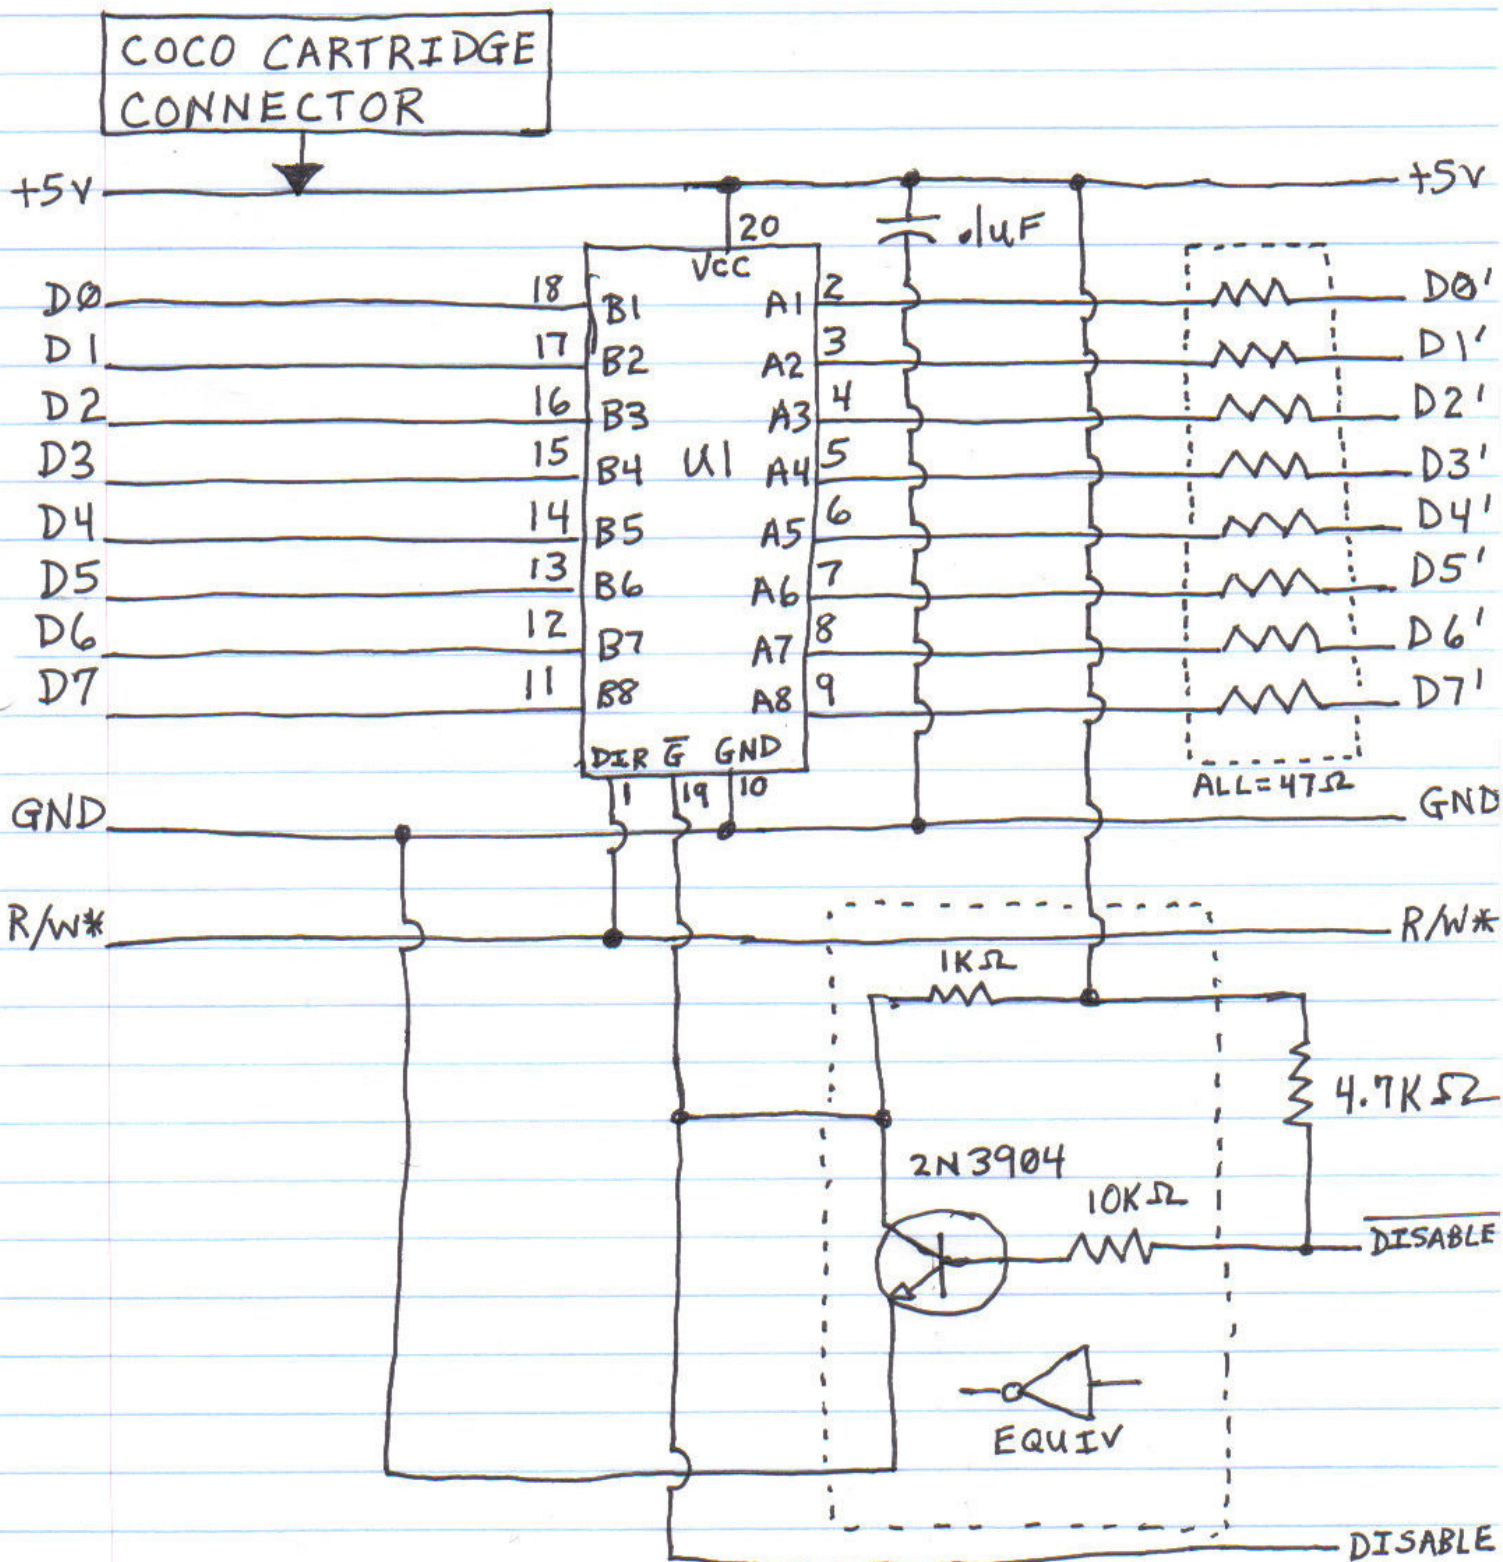 COCO CARTRIDGE
CONNECTOR
+5V
+5V
20
.1UF
VCC
D0 18 B1 A1 2 D0'
D1 17 B2 A2 3 D1'
D2 16 B3 A3 4 D2'
D3 15 B4 U1 A4 5 D3'
D4 14 B5 A5 6 D4'
D5 13 B6 A6 7 D5'
D6 12 B7 A7 8 D6'
D7 11 B8 A8 9 D7'
DIR G̅ GND
1 19 10
ALL=47Ω
GND
GND
R/W*
R/W*
1KΩ
4.7KΩ
2N3904
10KΩ
D̅I̅S̅A̅B̅L̅E̅
EQUIV
DISABLE